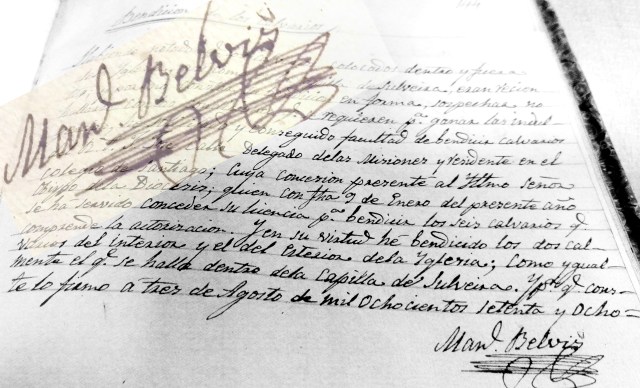 Bendicion de los Calvarios
colocados dentro y fuera
de Sulveira, eran recien
en forma, sospechar, no
requieren pª ganar las indul-
y conseguido facultad de bendicir calvarios
Delegado delas Misiones y residente en el
colegio de Santiago; Cuya concesion presente al Iltmo señor
Obispo dela Diocesis, quien con fha 9 de Enero del presente año
se ha servido conceder su licencia pª bendicir los seis calvarios q.
comprende la autorizacion. Y en su virtud he bendicido los dos cal-
varios del Interior y el del Esterior dela Yglesia; como ygual-
mente el q. se halla dentro dela Capilla de Sulveira. Y pª q. cons-
te lo firmo a tres de Agosto de mil Ochocientos setenta y Ocho=
Manl. Belvis
Manl. Belvis